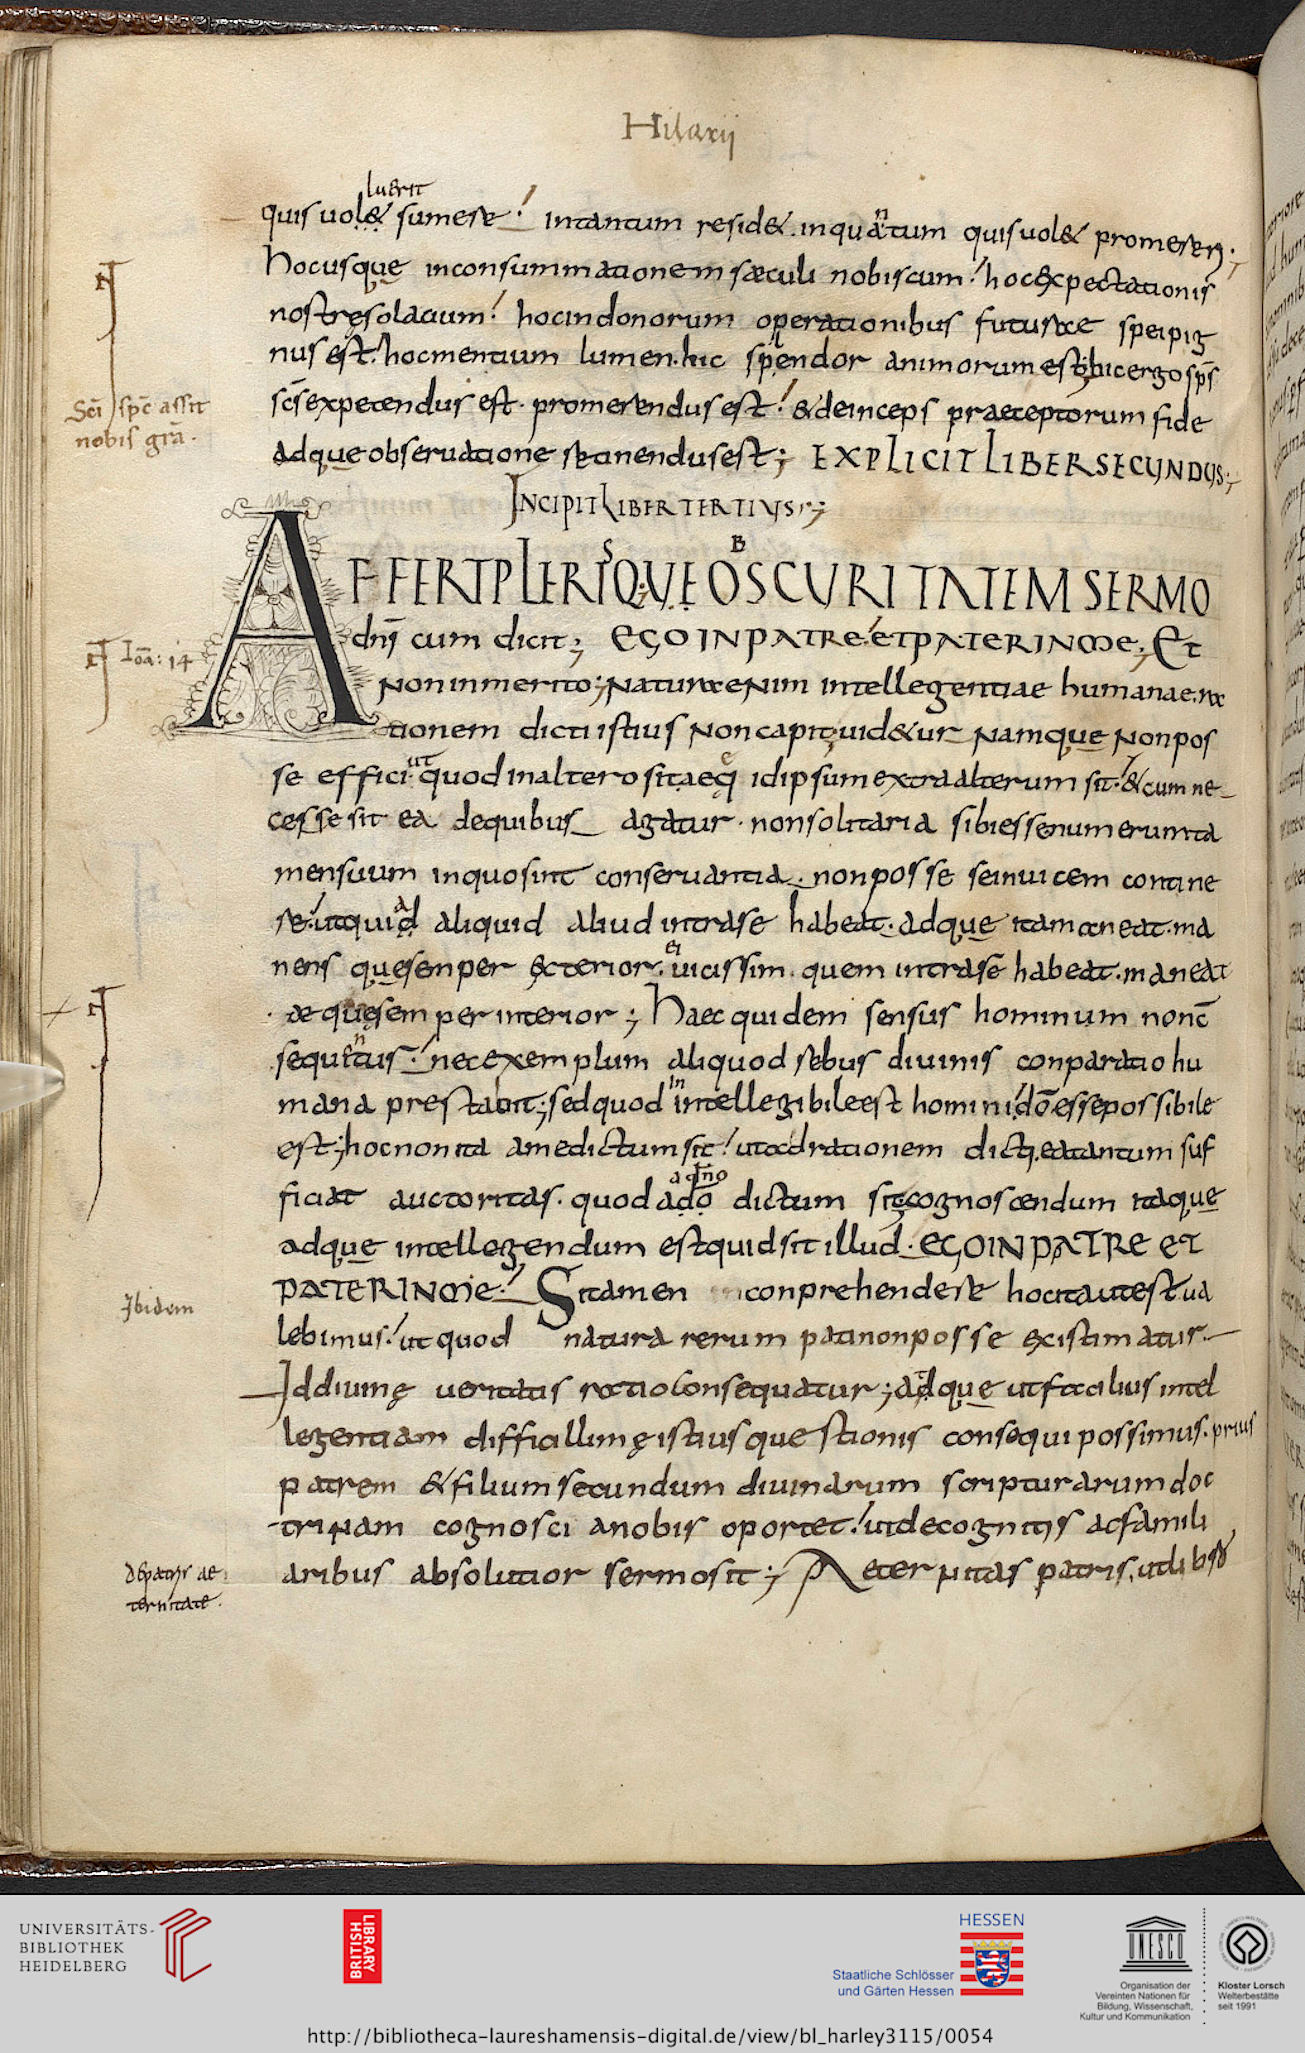 Hilarij
luerit
quisuol& sumere: intantum resid& inquantum quisuol& promereri;
hocusque inconsummationem sæculi nobiscum: hocexpectationis
nostręsolacium: hocindonorum operationibus futurae speipig
nus est: hocmentium lumen. hic splendor animorum est; hicergo sp̄s
sc̄s expetendus est. promerendus est: & deinceps praeceptorum fide
adque obseruatione retinendus est; EXPLICIT LIBER SECUNDUS;
Sc̄i sp̄c assit
nobis grā.
INCIPIT LIBER TERTIUS;
AFFERT PLERISQUE OBSCURITATEM SERMO
dn̄i cum dicit; EGO IN PATRE: ET PATER IN ME; Et
Ioā: 14
non inmerito; natura enim intellegentiae humanae. ra
tionem dicti istius non capit; uid&ur namque non pos
se effici: ut quod inaltero sit aeq; idipsum extra alterum sit: & cum ne
cesse sit ea dequibus agatur. nonsolitaria sibi esse numerum ta
mensuum inquo sint conseruantia. nonposse seinuicem contine
re: utquid aliquid aliud intrase habeat. adque ita maneat. ma
nens quesemper exterior. ei uicissim. quem intrase habeat. maneat
aequesemper interior; Haec quidem sensus hominum nonc̄
sequentur: nec exemplum aliquod rebus diuinis conparatio hu
mana prestabit; sedquod inintellegibile est homini: dō esse possibile
est; hoc non ita a me dictum sit: ut ad rationem dicti. ea tantum suf
ficiat auctoritas. quod adō dictum sit; cognoscendum itaque
adque intellegendum est quid sit illud. EGO IN PATRE ET
PATER IN ME: Sitamen conprehendere hoc ita ut est ua
Ibidem
lebimus: ut quod natura rerum pati non posse existimatur
Id diuinę ueritatis ratio consequatur; adque ut facilius intel
legentiam difficillimę istius questionis consequi possimus. prius
patrem & filium secundum diuinarum scripturarum doc
trinam cognosci anobis oportet: ut de cognitis ac famili
aribus absolutior sermo sit; Aeternitas patris, ut libro
de patris ae
ternitate.
UNIVERSITÄTS-
BIBLIOTHEK
HEIDELBERG
BRITISH
LIBRARY
HESSEN
Staatliche Schlösser
und Gärten Hessen
UNESCO
Organisation der
Vereinten Nationen für
Bildung, Wissenschaft,
Kultur und Kommunikation
Kloster Lorsch
Welterbestätte
seit 1991
http://bibliotheca-laureshamensis-digital.de/view/bl_harley3115/0054